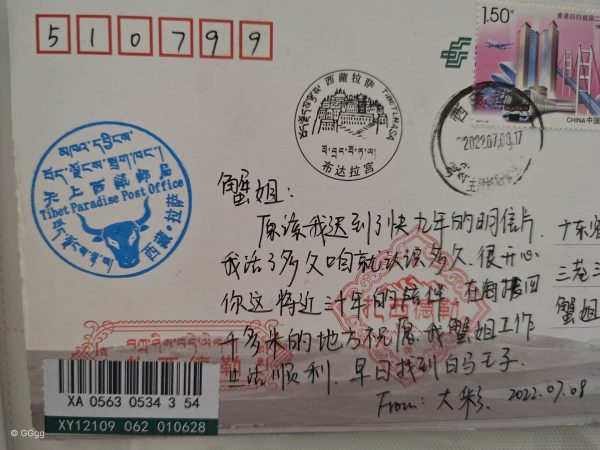 510799
1.50元
香港回归祖国二
CHINA 中国
西藏拉萨 TIBET LHASA
布达拉宫
2022.07.09.17
天上西藏邮局
Tibet Paradise Post Office
西藏·拉萨
蟹姐:
原谅我迟到了快九年的明信片
我活了多久咱就认识多久.很开心
你这将近三十年的陪伴 在海拔四
千多米的地方祝愿 我蟹姐工作
生活顺利,早日找到白马王子.
From: 大彩. 2022.07.08
广东省
三巷三
蟹姐
扎西德勒
XA 0563 0534 3 54
XY12109 062 010628
© GGgg